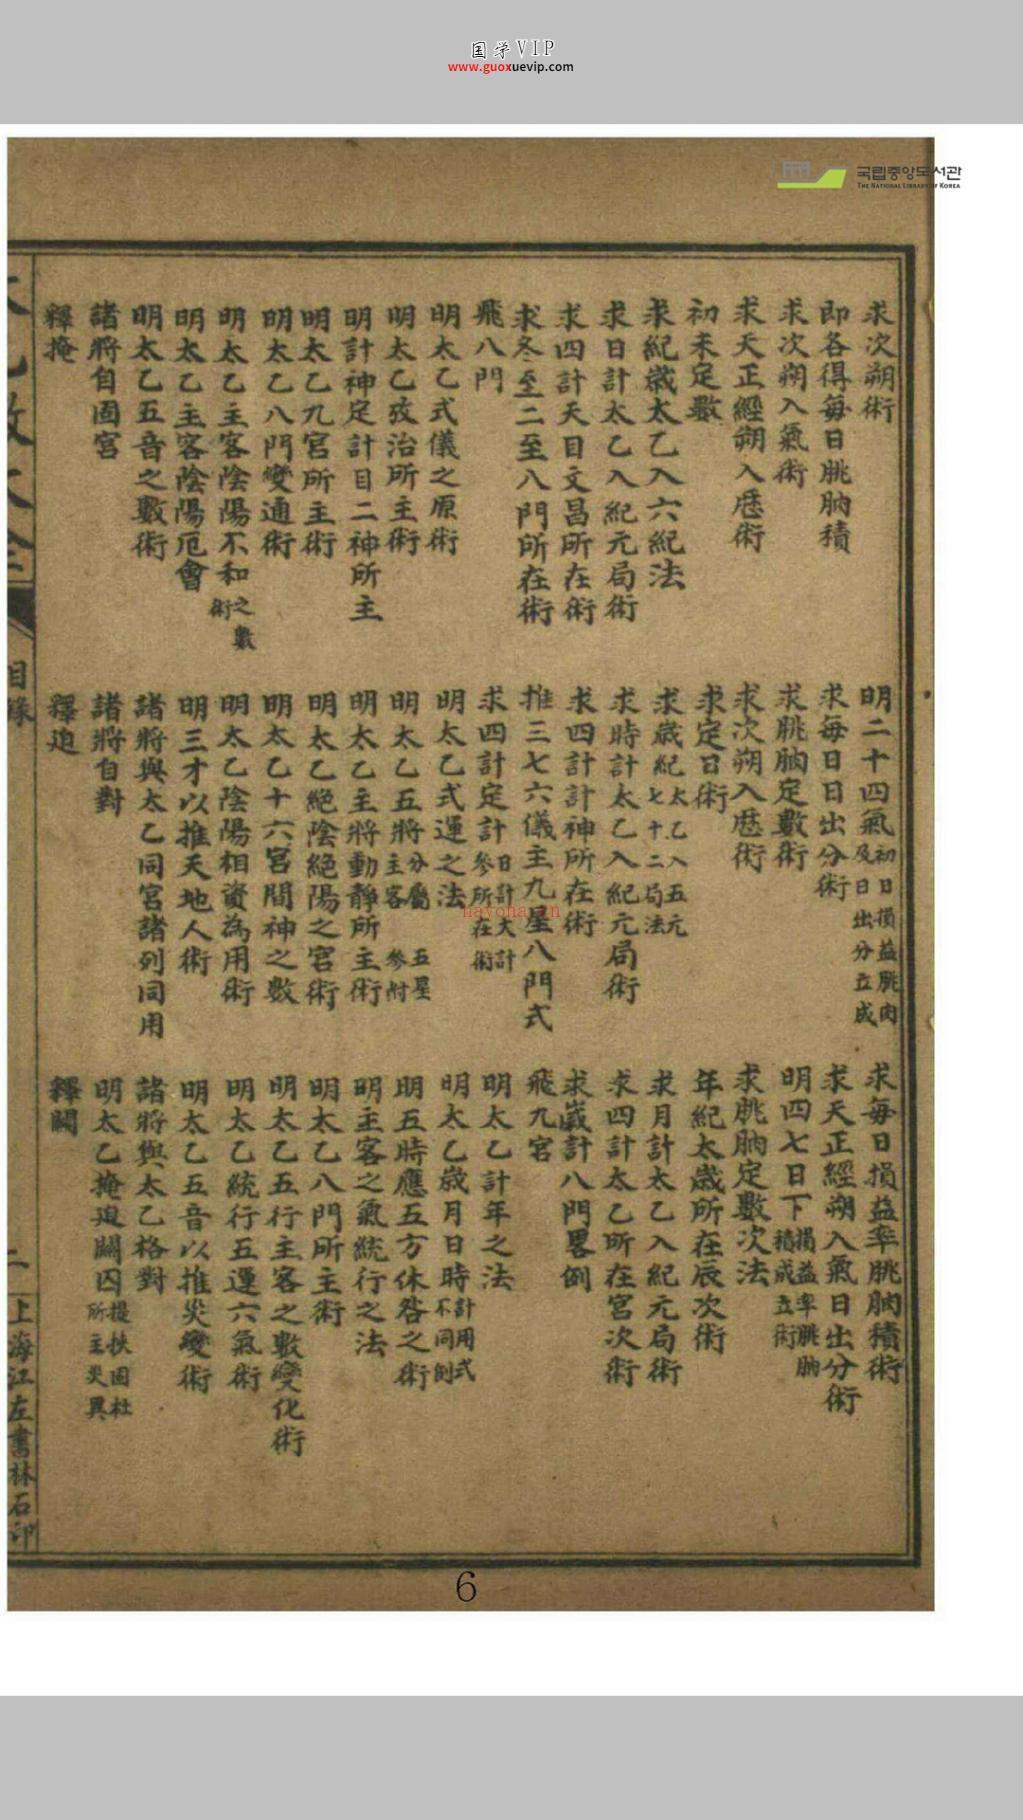 国学VIP
www.guoxuevip.com
국립중앙도서관
THE NATIONAL LIBRARY OF KOREA
求次朔術
明二十四氣初日損益朓肭及日出分立成
求每日損益率朓肭積術
即各得每日朓肭積
求每日日出分術
求天正經朔入氣日出分術
求次朔入氣術
求朓肭定數術
明四七日下損益率朓肭積成立術
求天正經朔入厯術
求次朔入厯術
求朓肭定數次法
初末定數
求定日術
年紀太歲所在辰次術
求紀歲太乙入六紀法
求歲紀太乙入五元七十二局法
求月計太乙入紀元局術
求日計太乙入紀元局術
求時計太乙入紀元局術
求四計太乙所在宮次術
求四計天目文昌所在術
求四計計神所在術
求歲計八門畧例
求冬至二至八門所在術
推三七六儀主九星八門式
飛九宮
飛八門
求四計定計日計大計參所在術
明太乙計年之法
明太乙式儀之原術
明太乙式運之法
明太乙歲月日時計用式不同例
明太乙攷治所主術
明太乙五將分屬主客 五星參附
明五時應五方休咎之術
明計神定計目二神所主
明太乙主將動靜所主術
明主客之氣統行之法
明太乙九宮所主術
明太乙絕陰絕陽之宮術
明太乙八門所主術
明太乙八門變通術
明太乙十六宮間神之數
明太乙五行主客之數變化術
明太乙主客陰陽不和之數術
明太乙陰陽相資為用術
明太乙統行五運六氣術
明太乙主客陰陽厄會
明三才以推天地人術
明太乙五音以推災變術
明太乙五音之數術
諸將與太乙同宮諸列同用
諸將與太乙格對
諸將自固宮
諸將自對
明太乙掩迫關囚提挾固杜所主災異
釋掩
釋迫
釋關
目錄
二
上海江左書林石印
hayona.cn
6